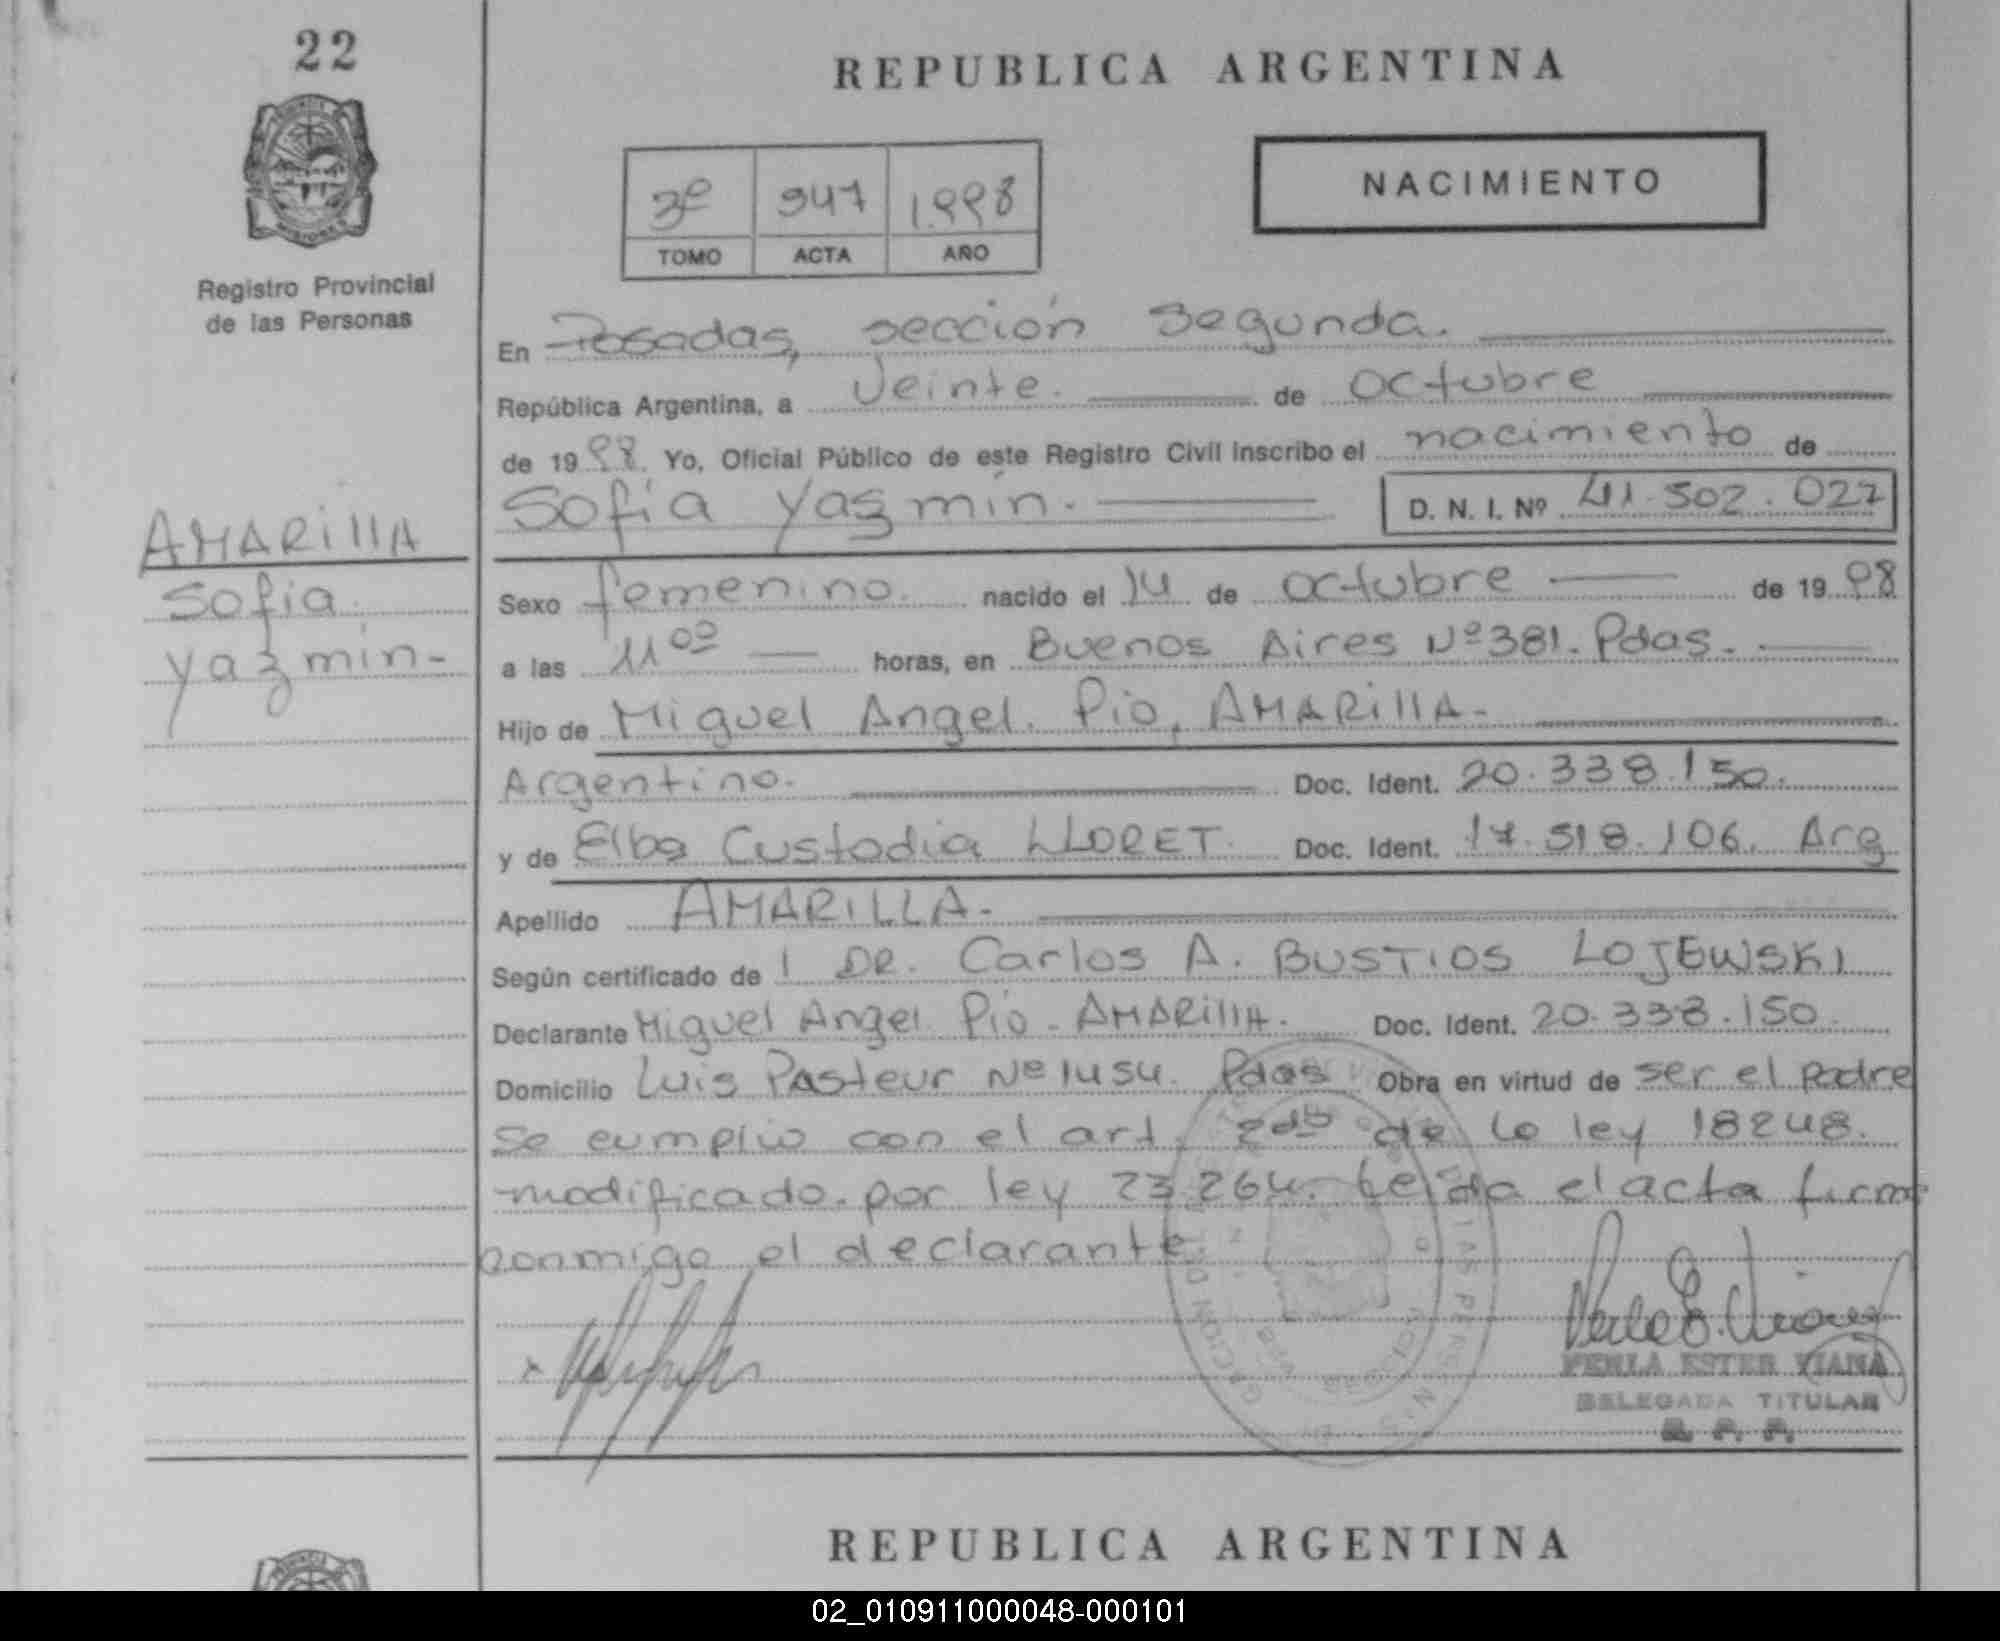 22
REPUBLICA ARGENTINA
3º 947 1.998
TOMO ACTA AÑO
NACIMIENTO
MISIONES
Registro Provincial
de las Personas
En Posadas, sección Segunda.
República Argentina, a Veinte. de Octubre
de 1998. Yo, Oficial Público de este Registro Civil inscribo el nacimiento de
Sofía Yazmín. D. N. I. Nº 41.502.027
AMARILLA
Sofía
Yazmín-
Sexo femenino. nacido el 14 de Octubre de 1998
a las 11 00 horas, en Buenos Aires Nº 381. Pdas.
Hijo de Miguel Angel Pio, AMARILLA-
Argentino. Doc. Ident. 20.338.150.
y de Elba Custodia LLORET. Doc. Ident. 17.518.106. Arg
Apellido AMARILLA-
Según certificado de l DR. Carlos A. BUSTIOS LOJEWSKI
Declarante Miguel Angel Pio - AMARILLA. Doc. Ident. 20.338.150.
Domicilio Luis Pasteur Nº 1454. Pdas Obra en virtud de ser el padre
se cumplio con el art. 2do de la ley 18248.
modificado por ley 23.264. Leida el acta firma
conmigo el declarante
PERLA ESTER VIANA
DELEGADA TITULAR
R. P. P.
REPUBLICA ARGENTINA
02_010911000048-000101